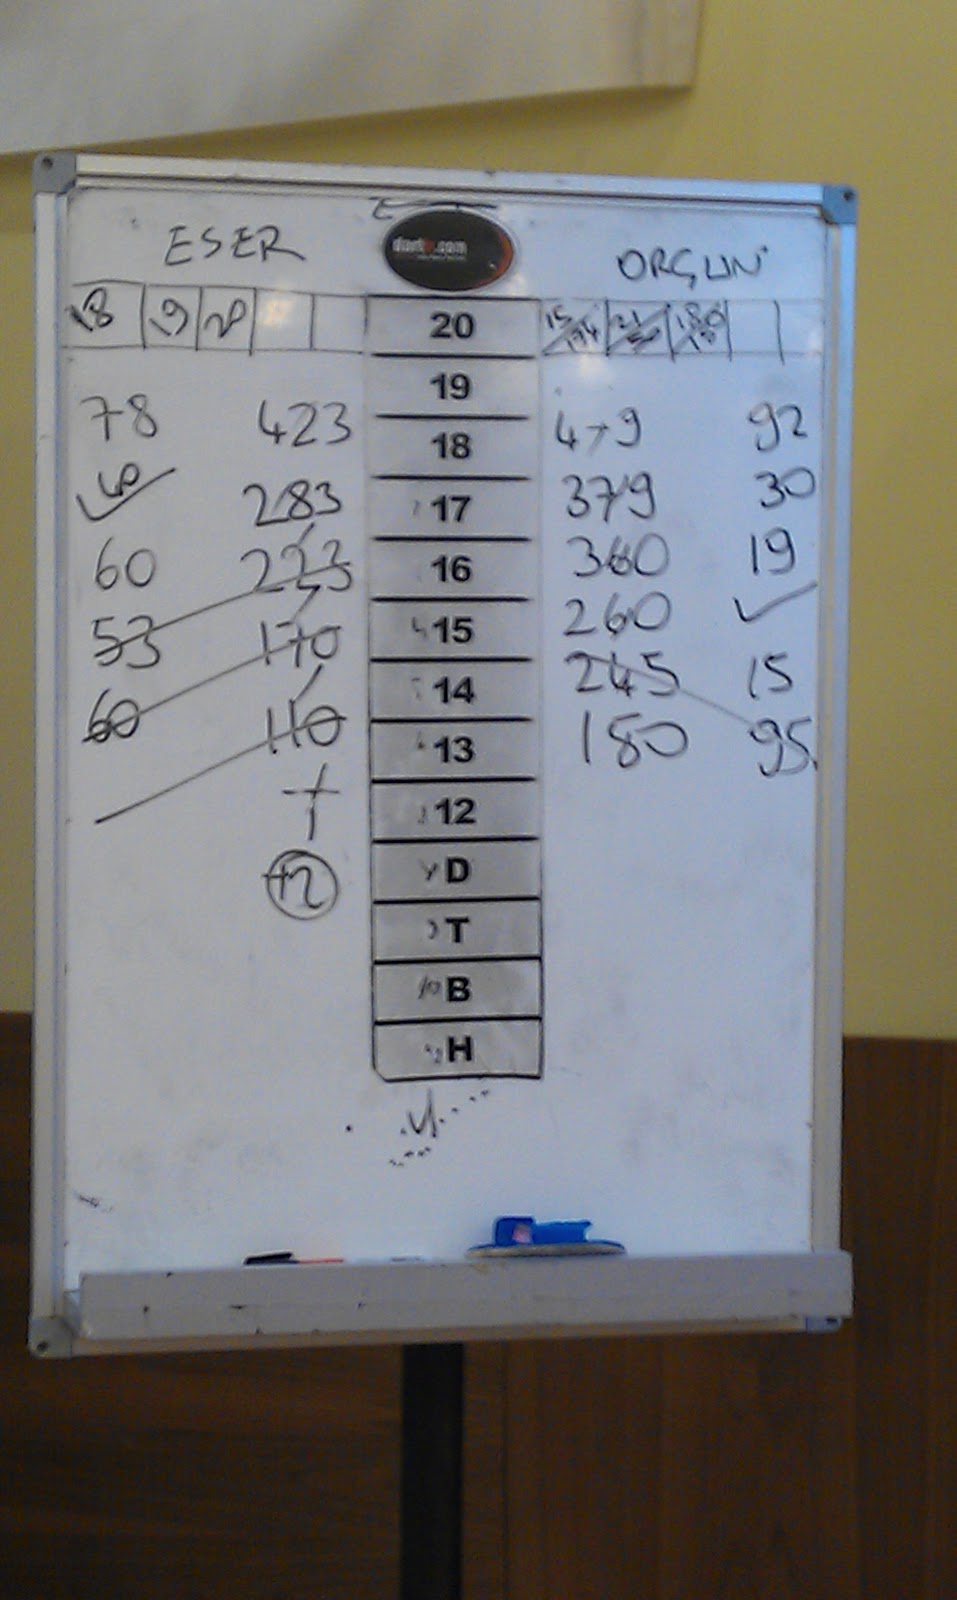 ESER
ORGUN
18 19 20
20
15 21 180
19
78 423
18
479 92
283
17
379 30
60 223
16
360 19
53 170
15
260
60 110
14
245 15
13
180 95
12
+2
D
T
B
H